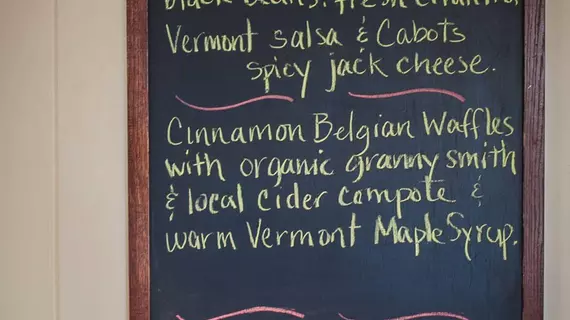 black beans. fresh
Vermont salsa & Cabots
spicy jack cheese.
Cinnamon Belgian Waffles
with organic granny smith
& local cider compote &
warm Vermont Maple Syrup.